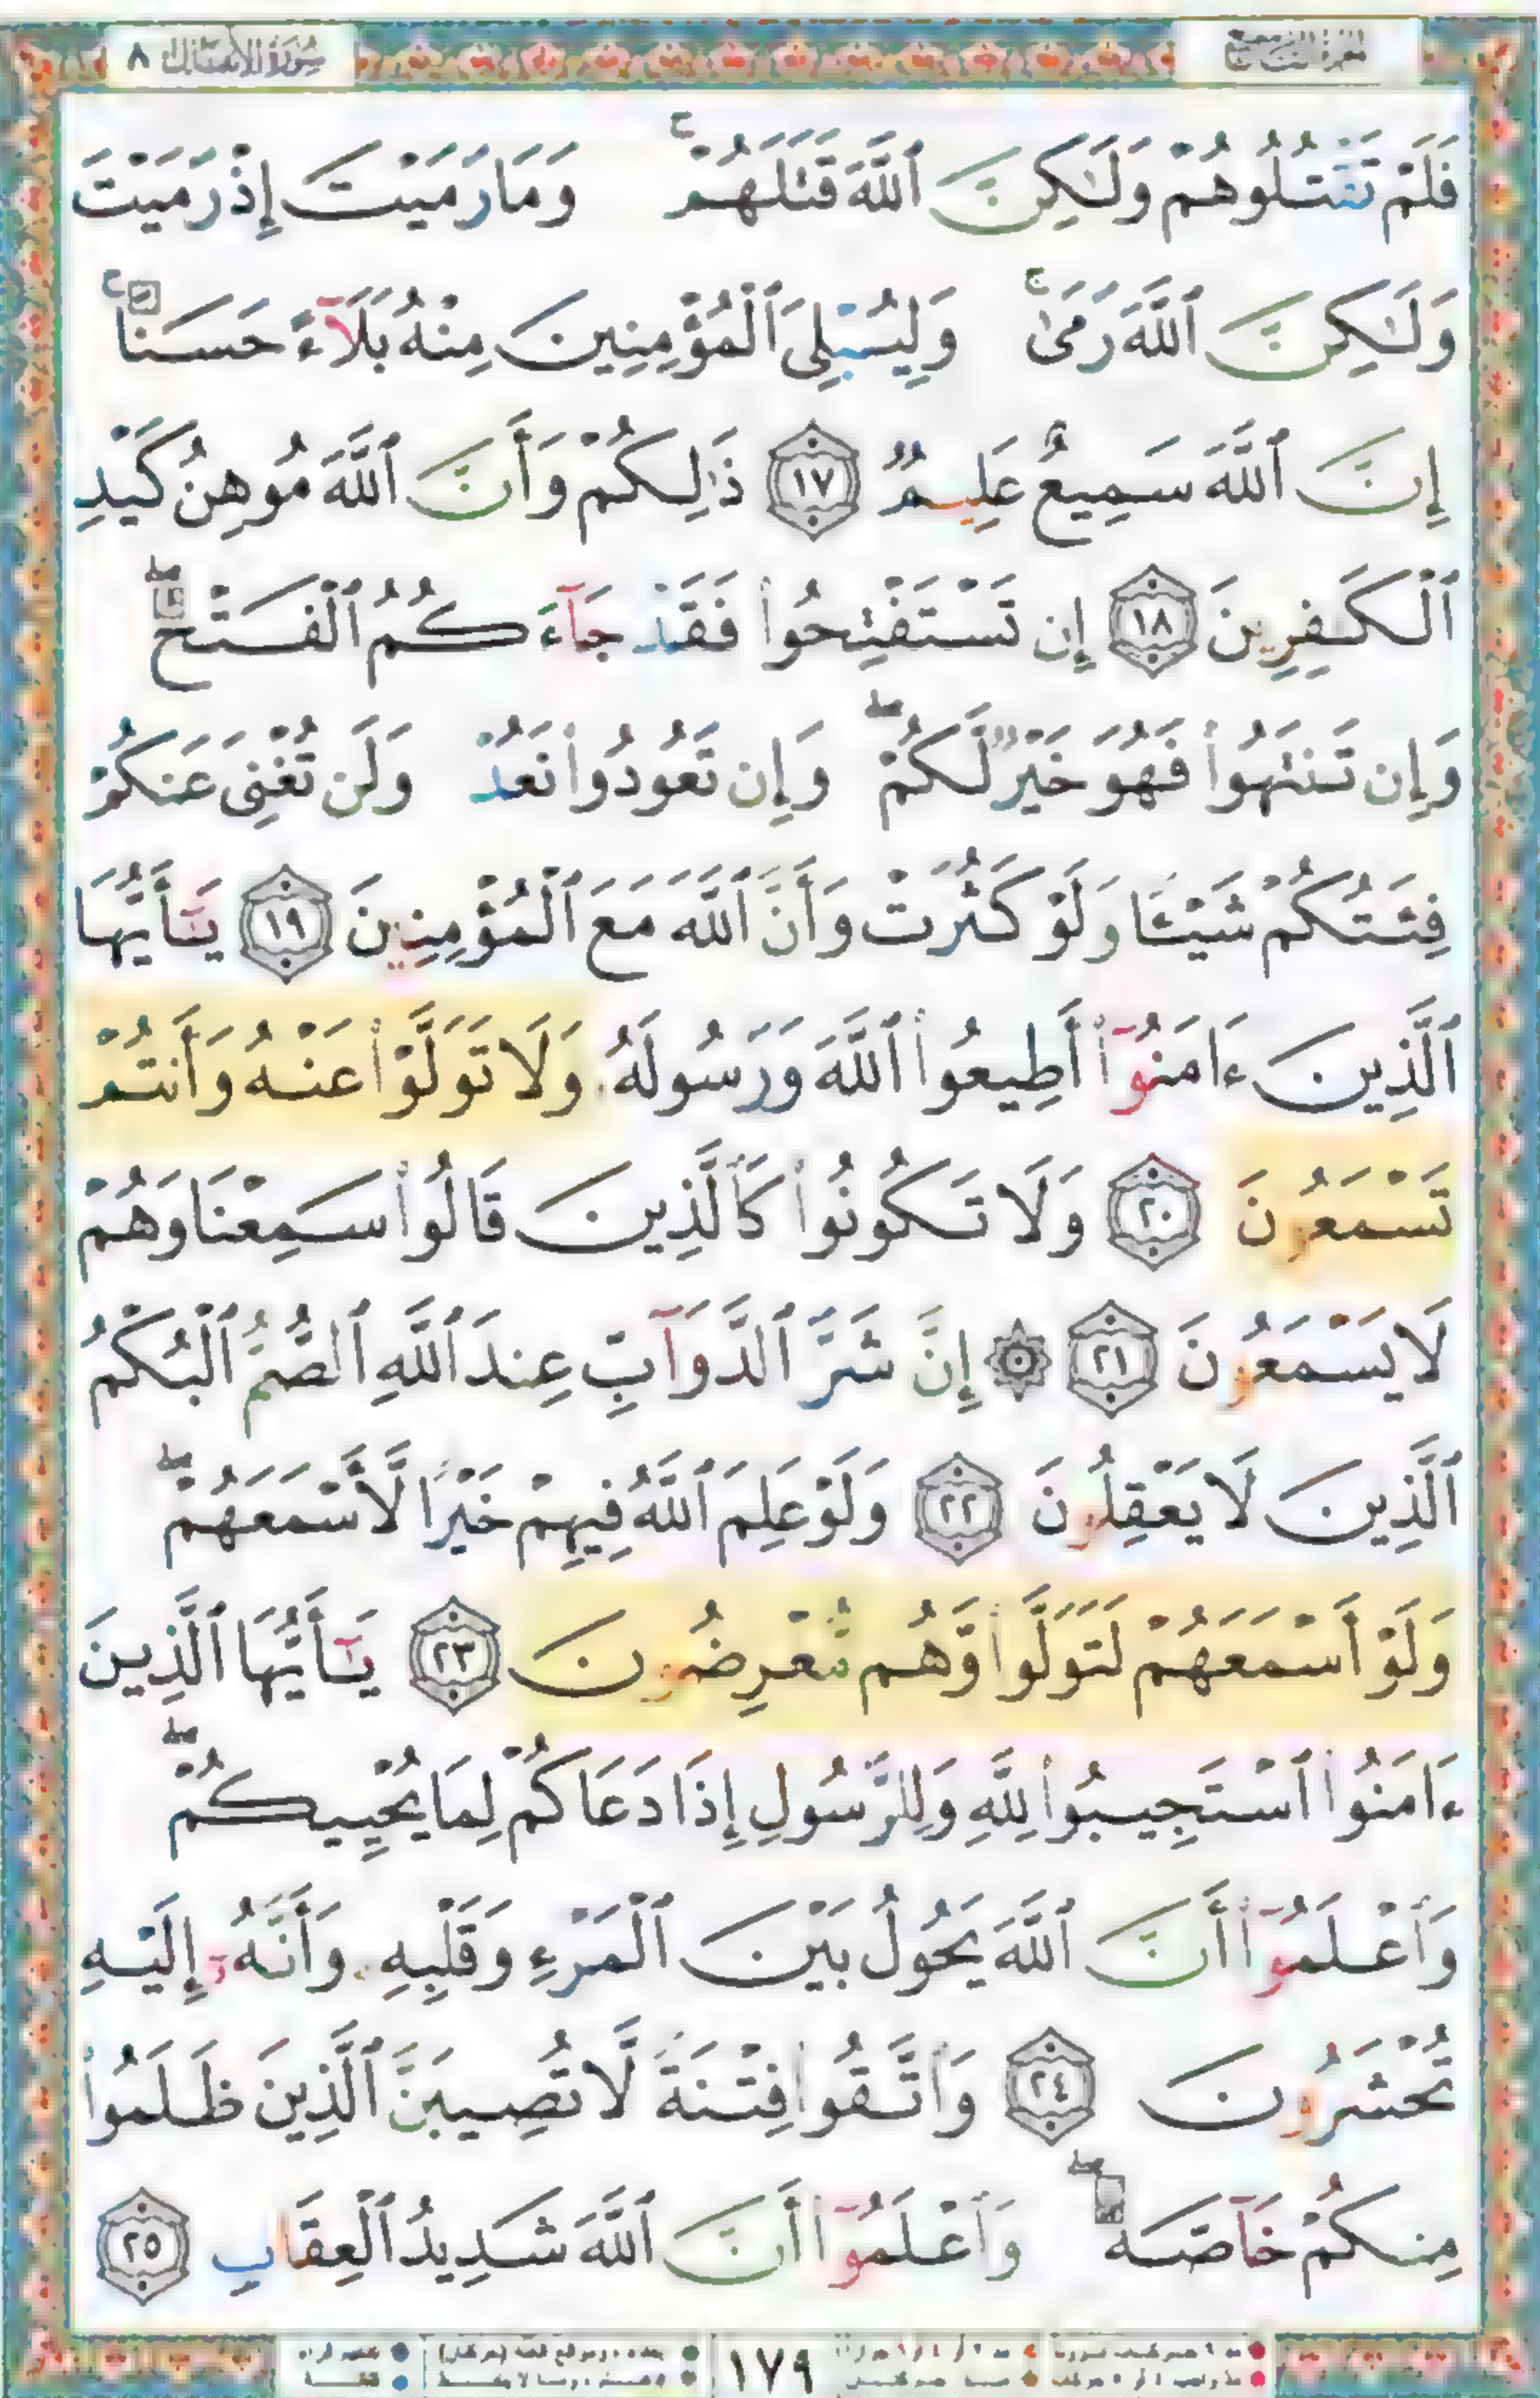 سُورَةُ الأَنفَالِ ٨
الجزء التاسع
فَلَمْ تَقْتُلُوهُمْ وَلَٰكِنَّ ٱللَّهَ قَتَلَهُمْ ۚ وَمَا رَمَيْتَ إِذْ رَمَيْتَ
وَلَٰكِنَّ ٱللَّهَ رَمَىٰ ۚ وَلِيُبْلِىَ ٱلْمُؤْمِنِينَ مِنْهُ بَلَآءً حَسَنًا ۚ
إِنَّ ٱللَّهَ سَمِيعٌ عَلِيمٌ ١٧ ذَٰلِكُمْ وَأَنَّ ٱللَّهَ مُوهِنُ كَيْدِ
ٱلْكَٰفِرِينَ ١٨ إِن تَسْتَفْتِحُوا۟ فَقَدْ جَآءَكُمُ ٱلْفَتْحُ ۖ
وَإِن تَنتَهُوا۟ فَهُوَ خَيْرٌ لَّكُمْ ۖ وَإِن تَعُودُوا۟ نَعُدْ وَلَن تُغْنِىَ عَنكُمْ
فِئَتُكُمْ شَيْـًٔا وَلَوْ كَثُرَتْ وَأَنَّ ٱللَّهَ مَعَ ٱلْمُؤْمِنِينَ ١٩ يَٰٓأَيُّهَا
ٱلَّذِينَ ءَامَنُوٓا۟ أَطِيعُوا۟ ٱللَّهَ وَرَسُولَهُۥ وَلَا تَوَلَّوْا۟ عَنْهُ وَأَنتُمْ
تَسْمَعُونَ ٢٠ وَلَا تَكُونُوا۟ كَٱلَّذِينَ قَالُوا۟ سَمِعْنَا وَهُمْ
لَا يَسْمَعُونَ ٢١ ۞ إِنَّ شَرَّ ٱلدَّوَآبِّ عِندَ ٱللَّهِ ٱلصُّمُّ ٱلْبُكْمُ
ٱلَّذِينَ لَا يَعْقِلُونَ ٢٢ وَلَوْ عَلِمَ ٱللَّهُ فِيهِمْ خَيْرًا لَّأَسْمَعَهُمْ ۖ
وَلَوْ أَسْمَعَهُمْ لَتَوَلَّوا۟ وَّهُم مُّعْرِضُونَ ٢٣ يَٰٓأَيُّهَا ٱلَّذِينَ
ءَامَنُوا۟ ٱسْتَجِيبُوا۟ لِلَّهِ وَلِلرَّسُولِ إِذَا دَعَاكُمْ لِمَا يُحْيِيكُمْ ۖ
وَٱعْلَمُوٓا۟ أَنَّ ٱللَّهَ يَحُولُ بَيْنَ ٱلْمَرْءِ وَقَلْبِهِۦ وَأَنَّهُۥٓ إِلَيْهِ
تُحْشَرُونَ ٢٤ وَٱتَّقُوا۟ فِتْنَةً لَّا تُصِيبَنَّ ٱلَّذِينَ ظَلَمُوا۟
مِنكُمْ خَآصَّةً ۖ وَٱعْلَمُوٓا۟ أَنَّ ٱللَّهَ شَدِيدُ ٱلْعِقَابِ ٢٥
١٧٩